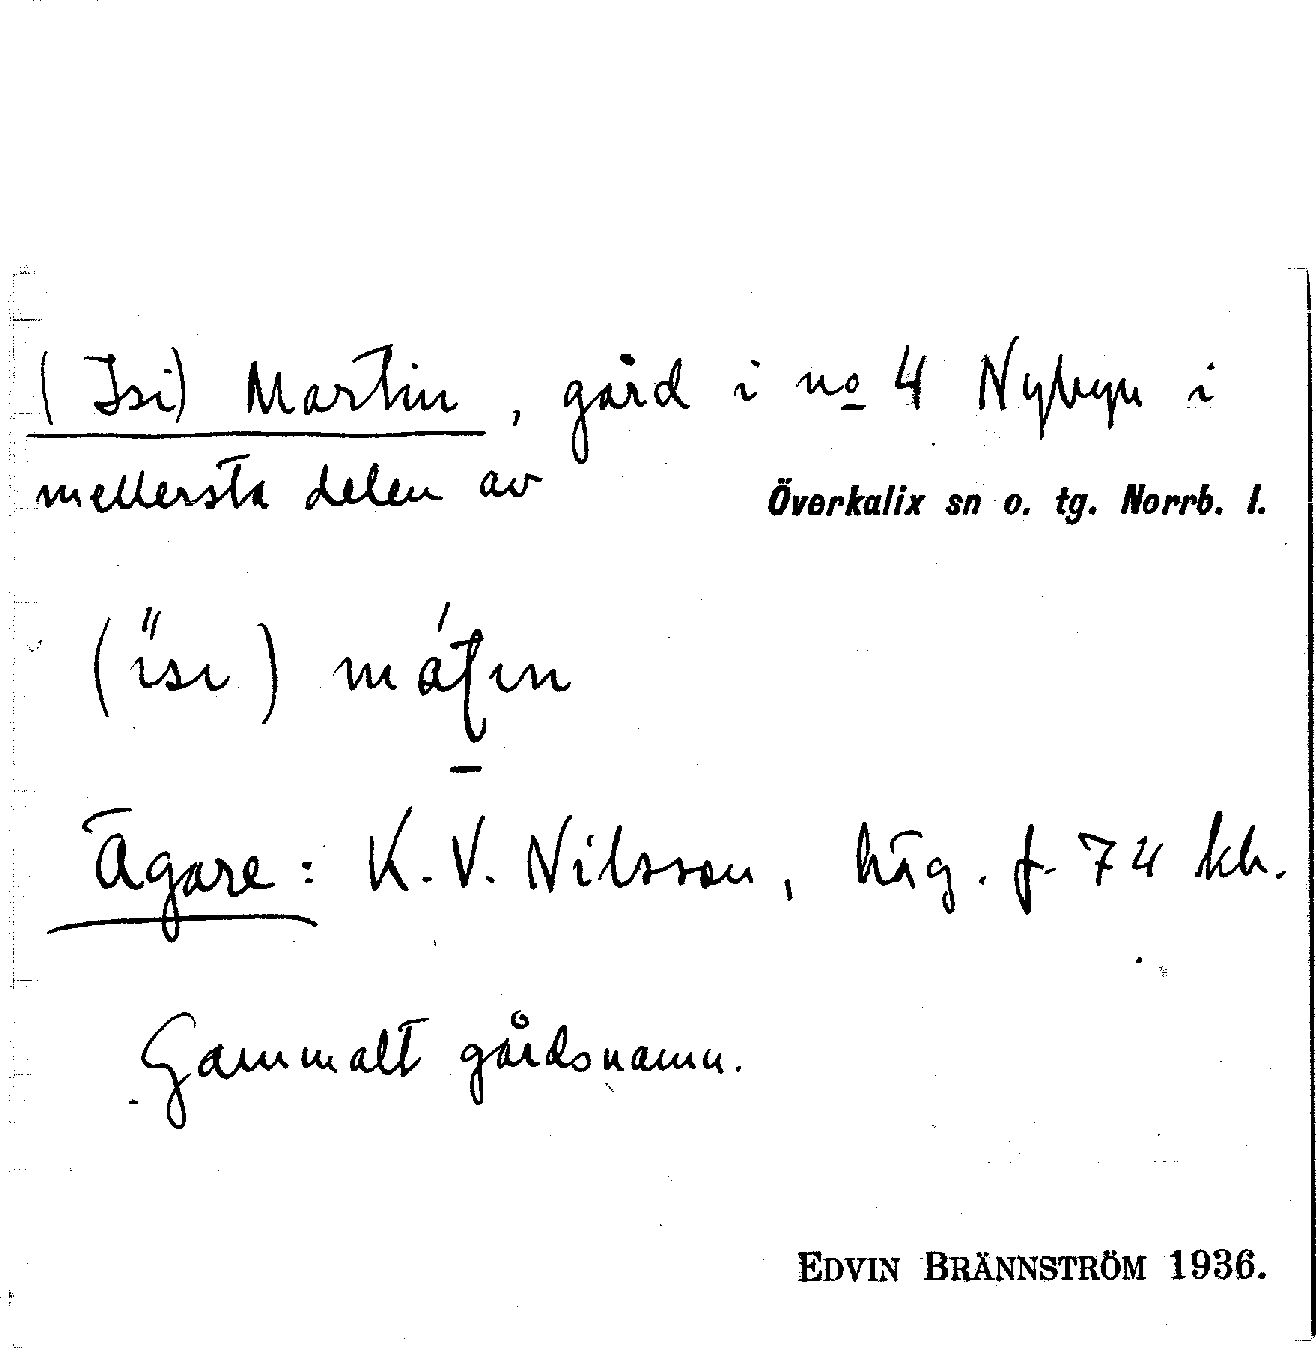 (Isi) Martin, gård i no 4 Nybyn i
mellersta delen av Överkalix sn o. tg. Norrb. l.
(ı̋sı)
Ägare: K. V. Nilsson, häg. f. 74 kh.
Gammalt gårdsnamn.
EDVIN BRÄNNSTRÖM 1936.